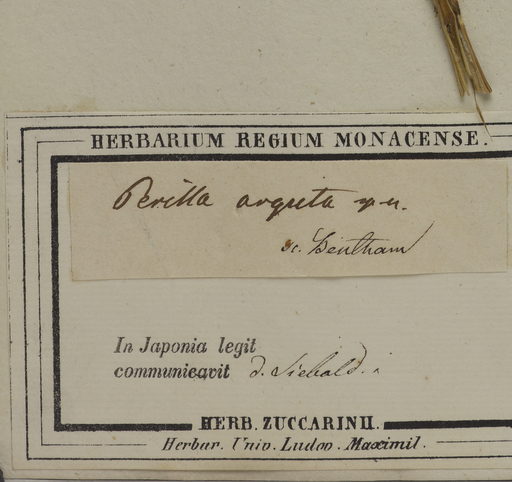 HERBARIUM REGIUM MONACENSE.
Perilla arguta
sc. Bentham
In Japonia legit
communicavit d. Siebold.
HERB. ZUCCARINII.
Herbar. Univ. Ludov. Maximil.